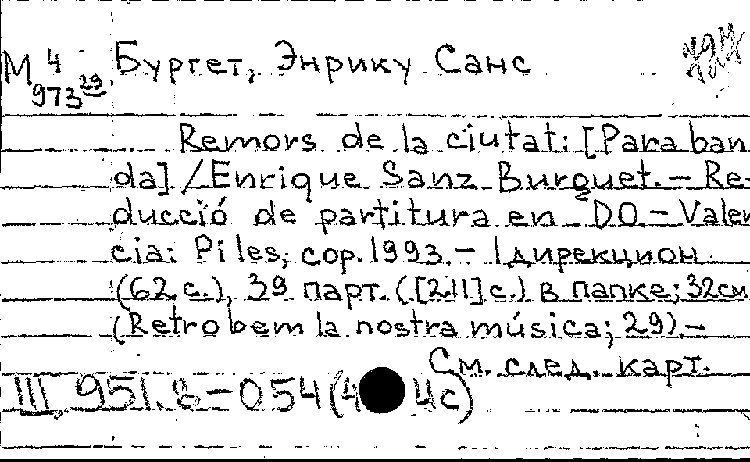 М 4 Бургет, Энрику Санс
973 29
Remors de la ciutat: [Para ban
da] / Enrique Sanz Burguet. - Re-
ducció de partitura en DO - Valen
cia: Piles, cop. 1993. - 1 дирекцион.
(62 с.), 39 парт. ([211] с.) в папке; 32см
(Retrobem la nostra música; 29). -
См. след. карт.
III 951.8-054(4 4с)